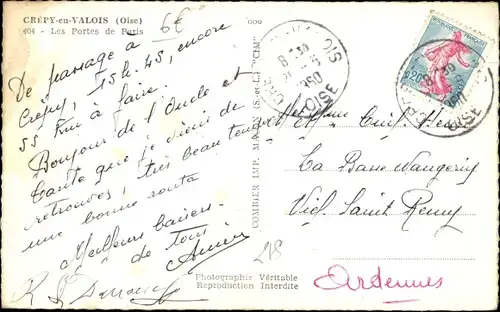 CRÉPY-en-VALOIS (Oise)
404 - Les Portes de Paris
6€
De passage à
Crépy, 15h.45, encore
55 Km à faire.
Bonjour de l'Oncle et
Tante que je viens de
retrouver, très beau temps
une bonne route
Meilleurs baisers
à tous
R
COMBIER IMP. MACON (S.-et-L.) "CIM"
OISE
8 30
1960
OISE
0,20
La Basse Wangeniy
Viel Saint Remy
Ardennes
218
Photographie Véritable
Reproduction Interdite